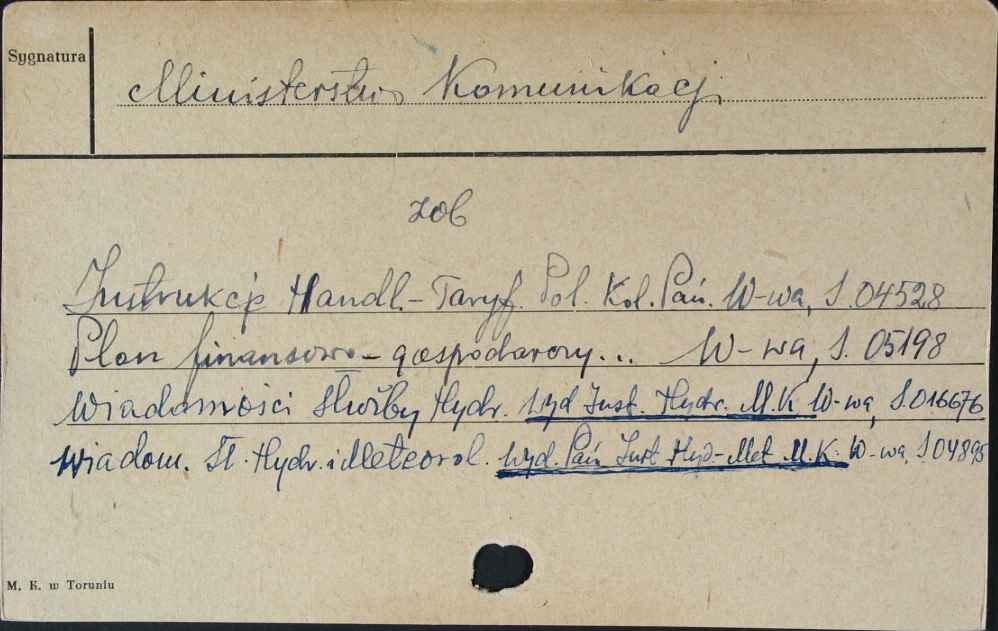 Sygnatura
Ministerstwo Komunikacji
zob
Instrukcje Handl.-Taryf. Pol. Kol. Pań. W-wa, S.04528
Plan finansowo-gospodarczy... W-wa, S. 05198
Wiadomości Służby Hydr. Wyd Inst. Hydr. M.K W-wa, S.016676
Wiadom. Sł. Hydr. i Meteorol. Wyd. Pań Inst Hyd-Met M.K. W-wa, S04895
M. K. w Toruniu